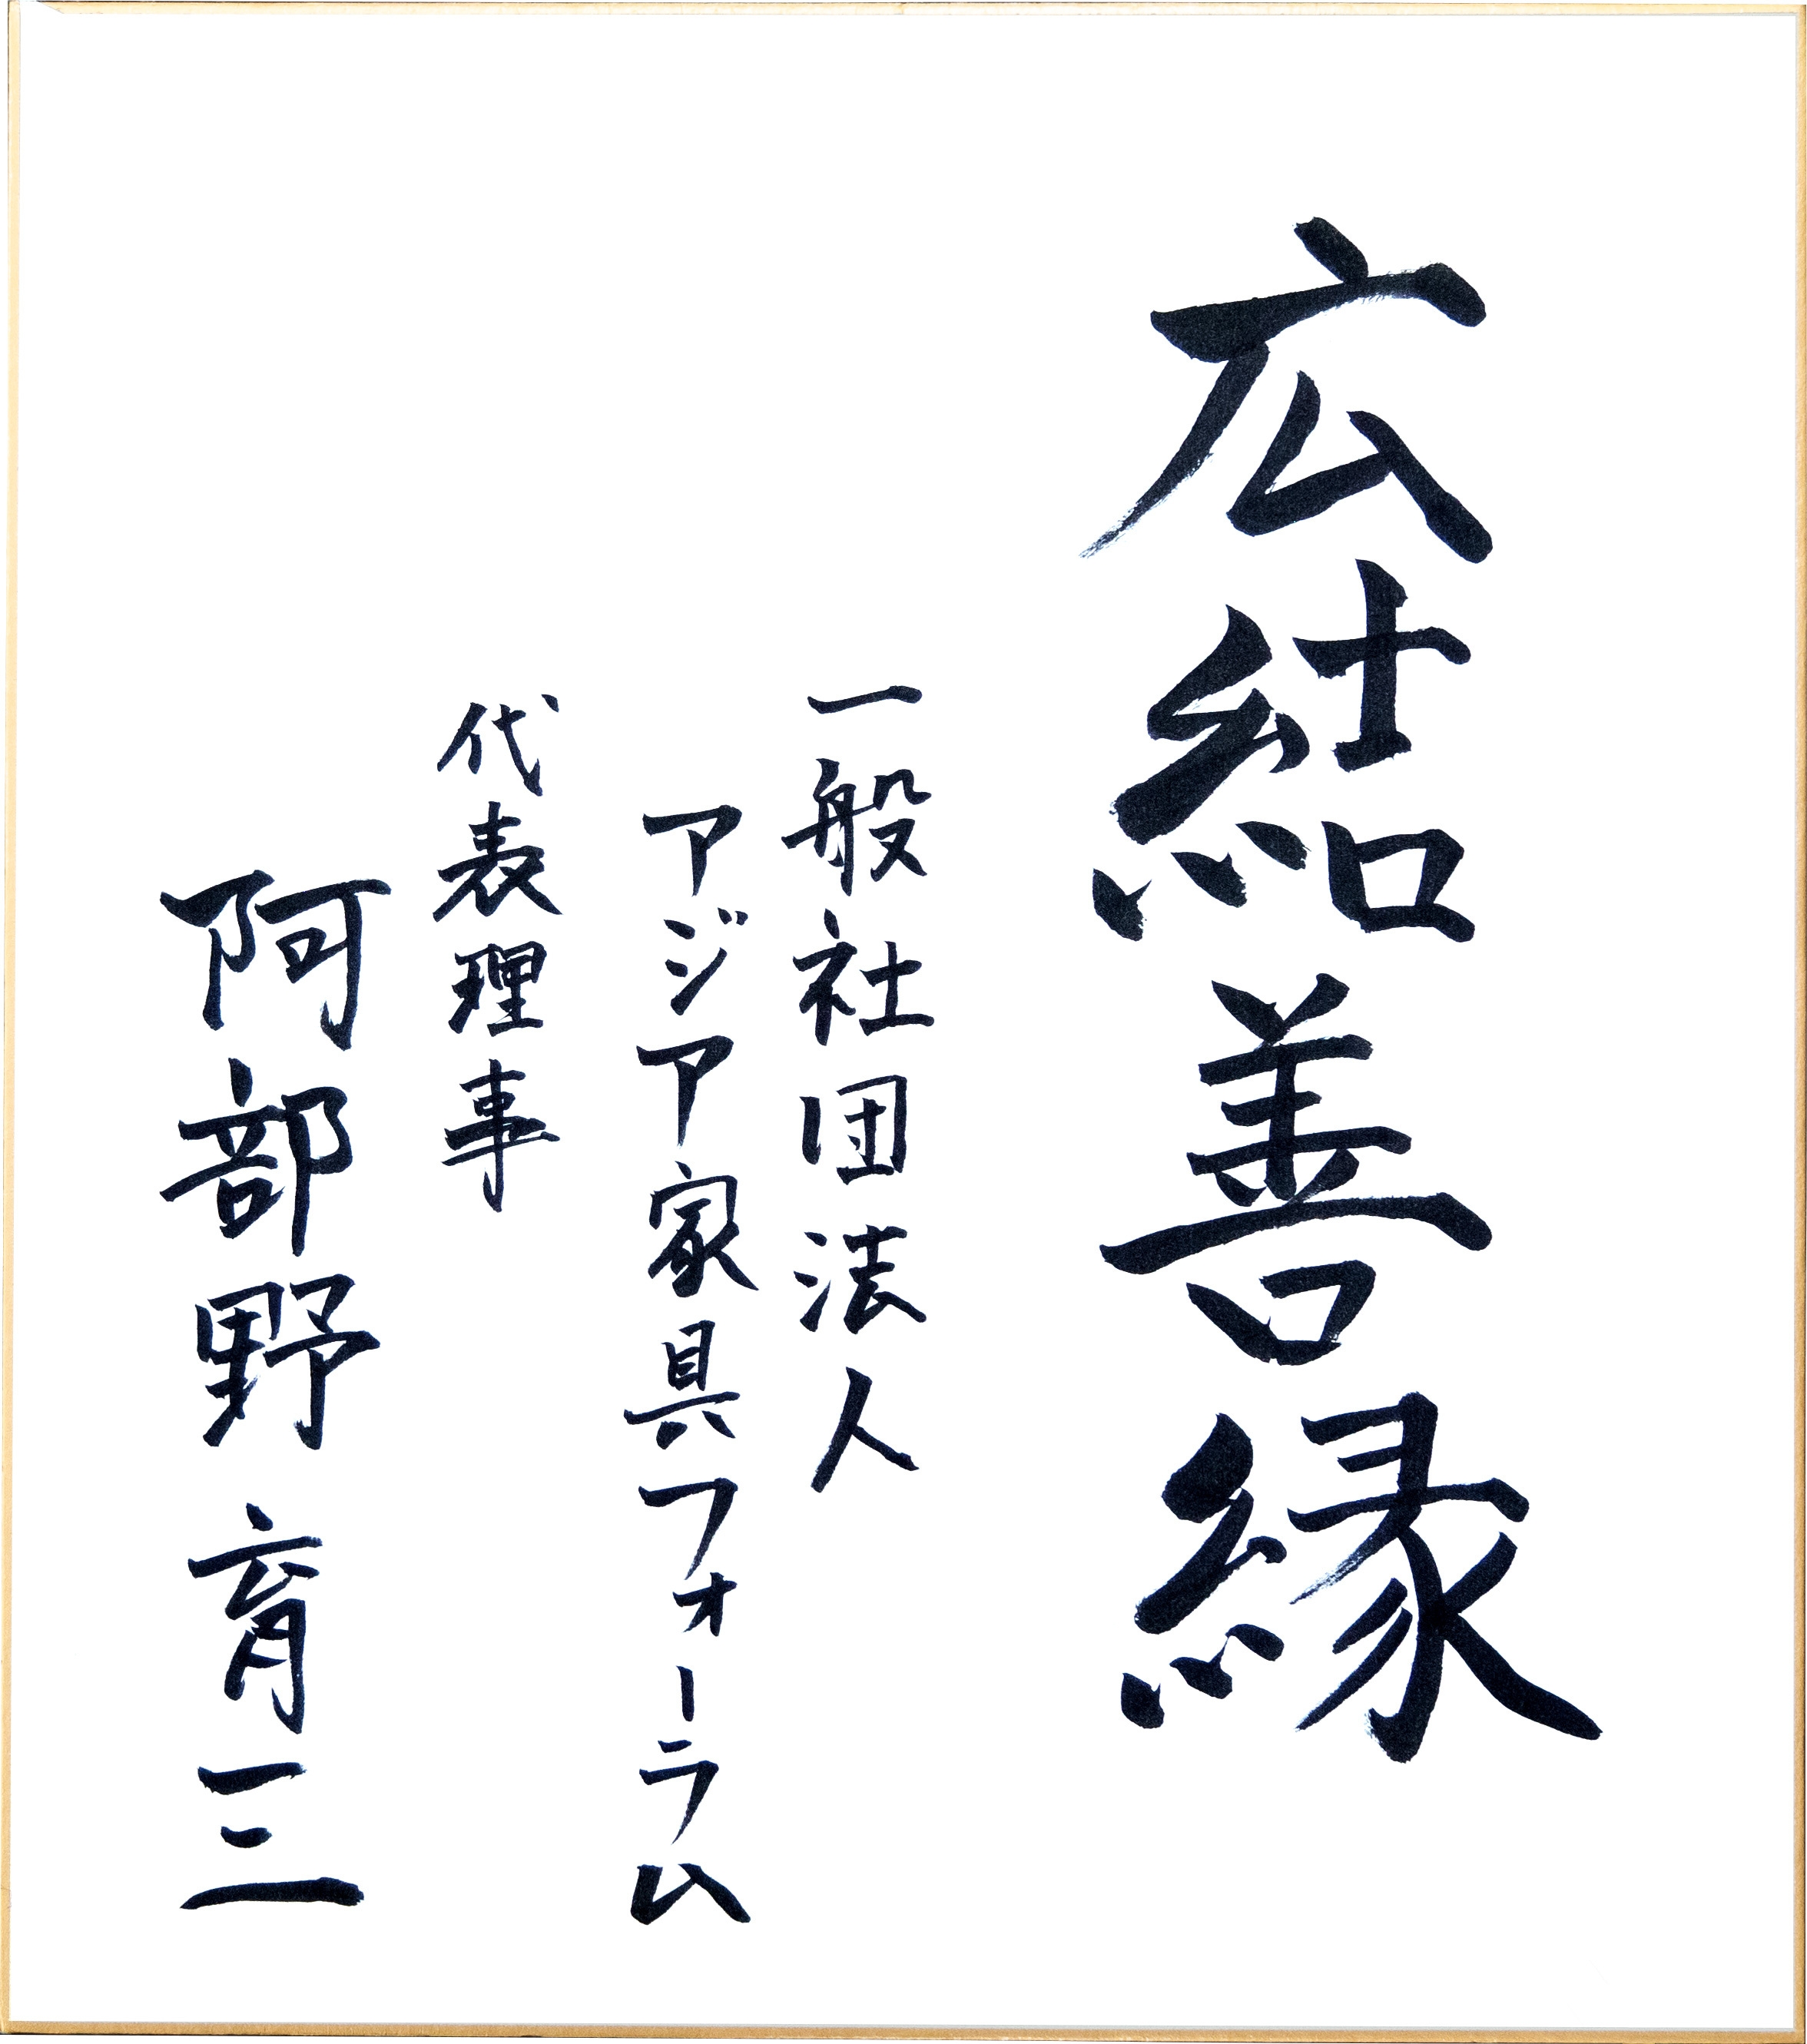 広結善縁
一般社団法人
アジア家具フォーラム
代表理事
阿部野 育三